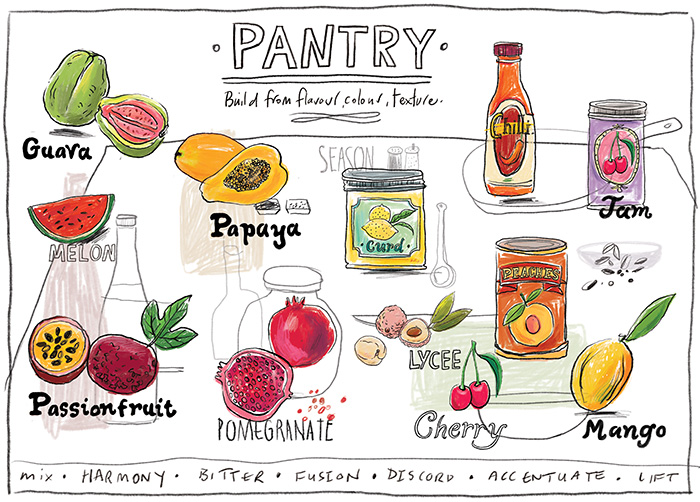 · PANTRY ·
Build from flavour, colour, texture.
Guava
Chilli
Jam
SEASON
Papaya
Curd
MELON
PEACHES
LYCEE
Passionfruit
POMEGRANATE
Cherry
Mango
mix · HARMONY · BITTER · FUSION · DISCORD · ACCENTUATE · LIFT